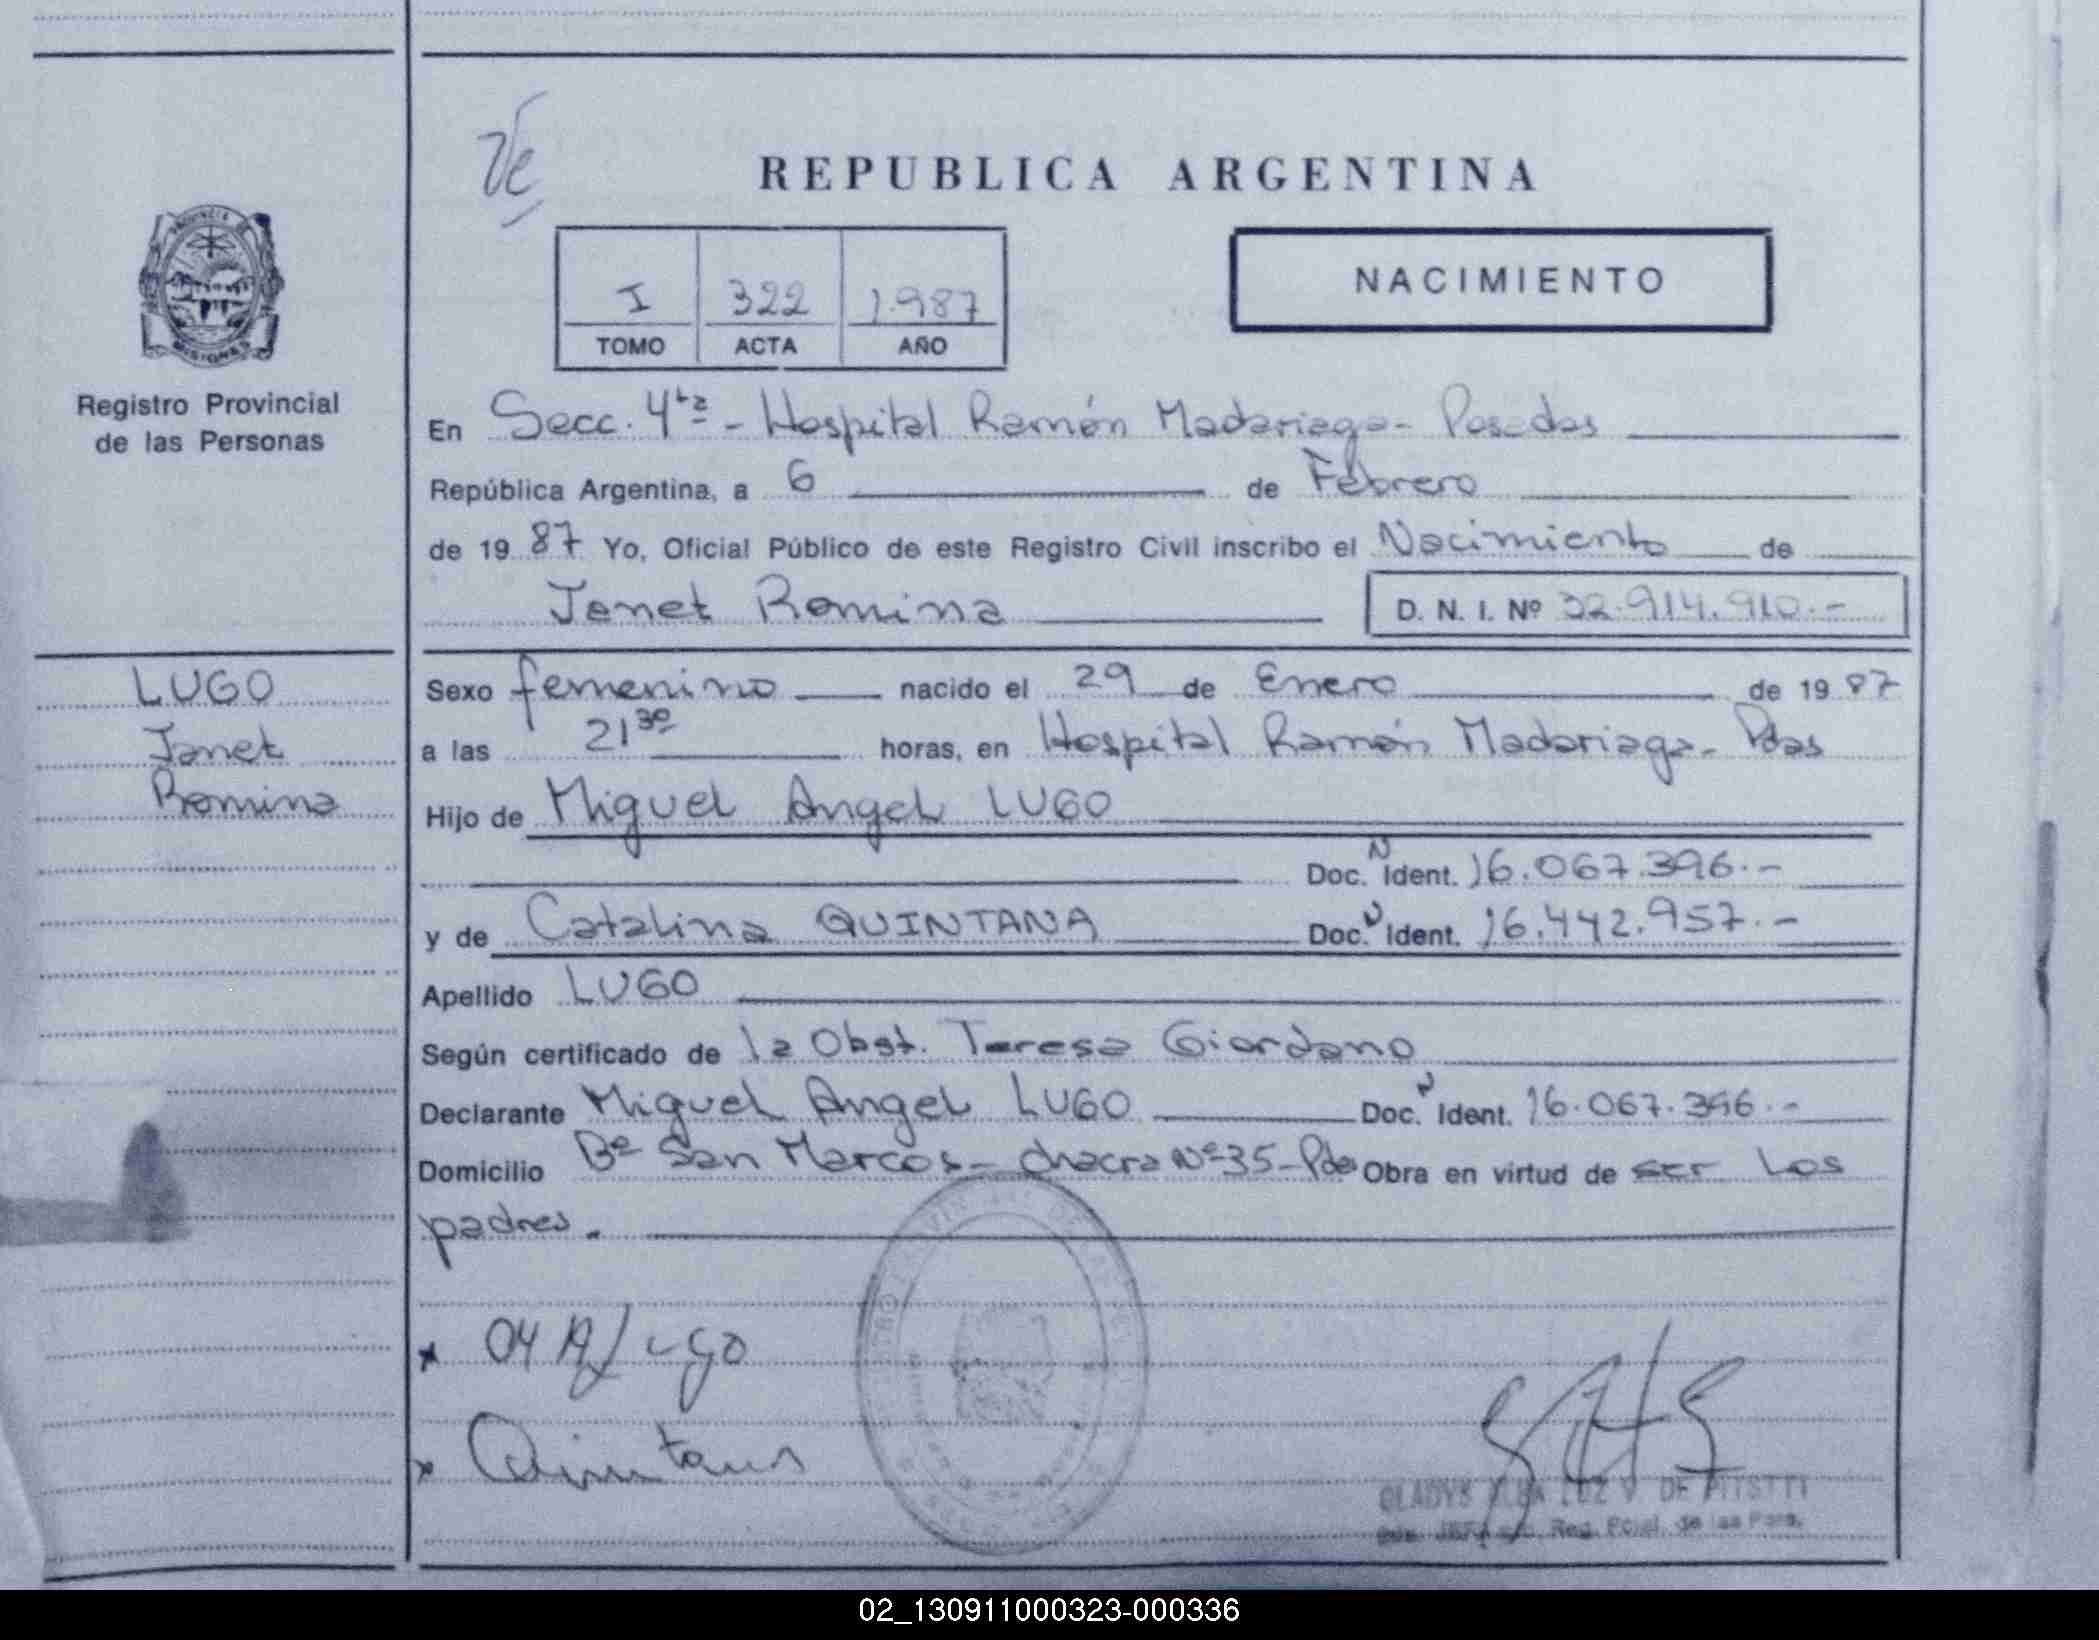 Ve
REPUBLICA ARGENTINA
PROVINCIA DE
MISIONES
Registro Provincial
de las Personas
I 322 1.987
TOMO ACTA AÑO
NACIMIENTO
En Secc. 4ta - Hospital Ramón Madariaga - Posadas
República Argentina, a 6 de Febrero
de 1987 Yo, Oficial Público de este Registro Civil inscribo el Nacimiento de
Janet Romina D. N. I. Nº 32.914.910.-
LUGO
Janet
Romina
Sexo femenino nacido el 29 de Enero de 1987
a las 21 30 horas, en Hospital Ramón Madariaga - Pdas
Hijo de Miguel Angel LUGO
Doc. N Ident. 16.067.396.-
y de Catalina QUINTANA Doc. N Ident. 16.442.957.-
Apellido LUGO
Según certificado de la Obst. Teresa Giordano
Declarante Miguel Angel LUGO Doc. N Ident. 16.067.396.-
Domicilio Bº San Marcos - chacra Nº 35 - Pdas Obra en virtud de ser los
padres.
x Lugo
x Quintana
GLADYS LUZ V. DE
Reg. Pcial. de las Pers.
02_130911000323-000336